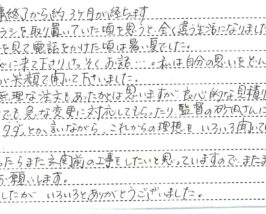 事終了から約3ヶ月が経ちます
ラシを取り置いていた頃を思うと、全く違う生活になりました
を見て電話をかけた頃は暑い夏でした。
に来て下さり、そのお話 私は自分の思いをどん
が笑顔で聞いて下さいました。
無理な注文もあったかとは思いますが、良心的な見積り
でも急な変更に対応してもらったり、監督の
タダとか言いながら、これからの理想をいろいろ聞いて
ったらまた玄関前の工事をしたいと思っていますので、また
お願いします。
したが、いろいろとありがとうございました。